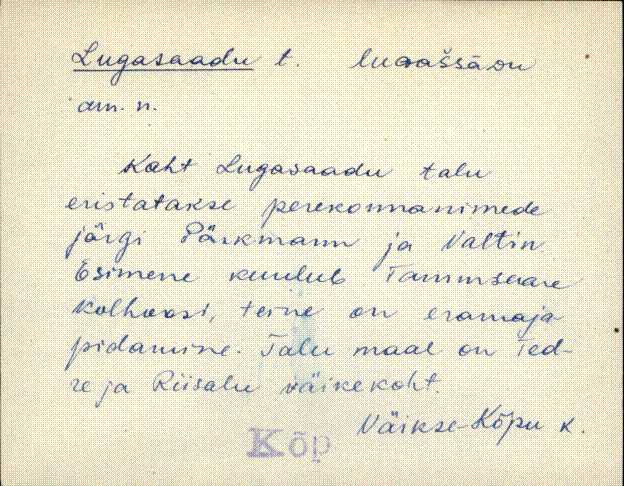 Lugasaadu t.
am. n.
Kaht Lugasaadu talu
eristatakse perekonnanimede
järgi Pärkmann ja Valtin
Esimene kuulub Tammsaare
kolhoosi, teine on eramaja
pidamine. Talu maal on Ted-
re ja Riisalu väikekoht.
Väikse-Kõpu k.
Kõp